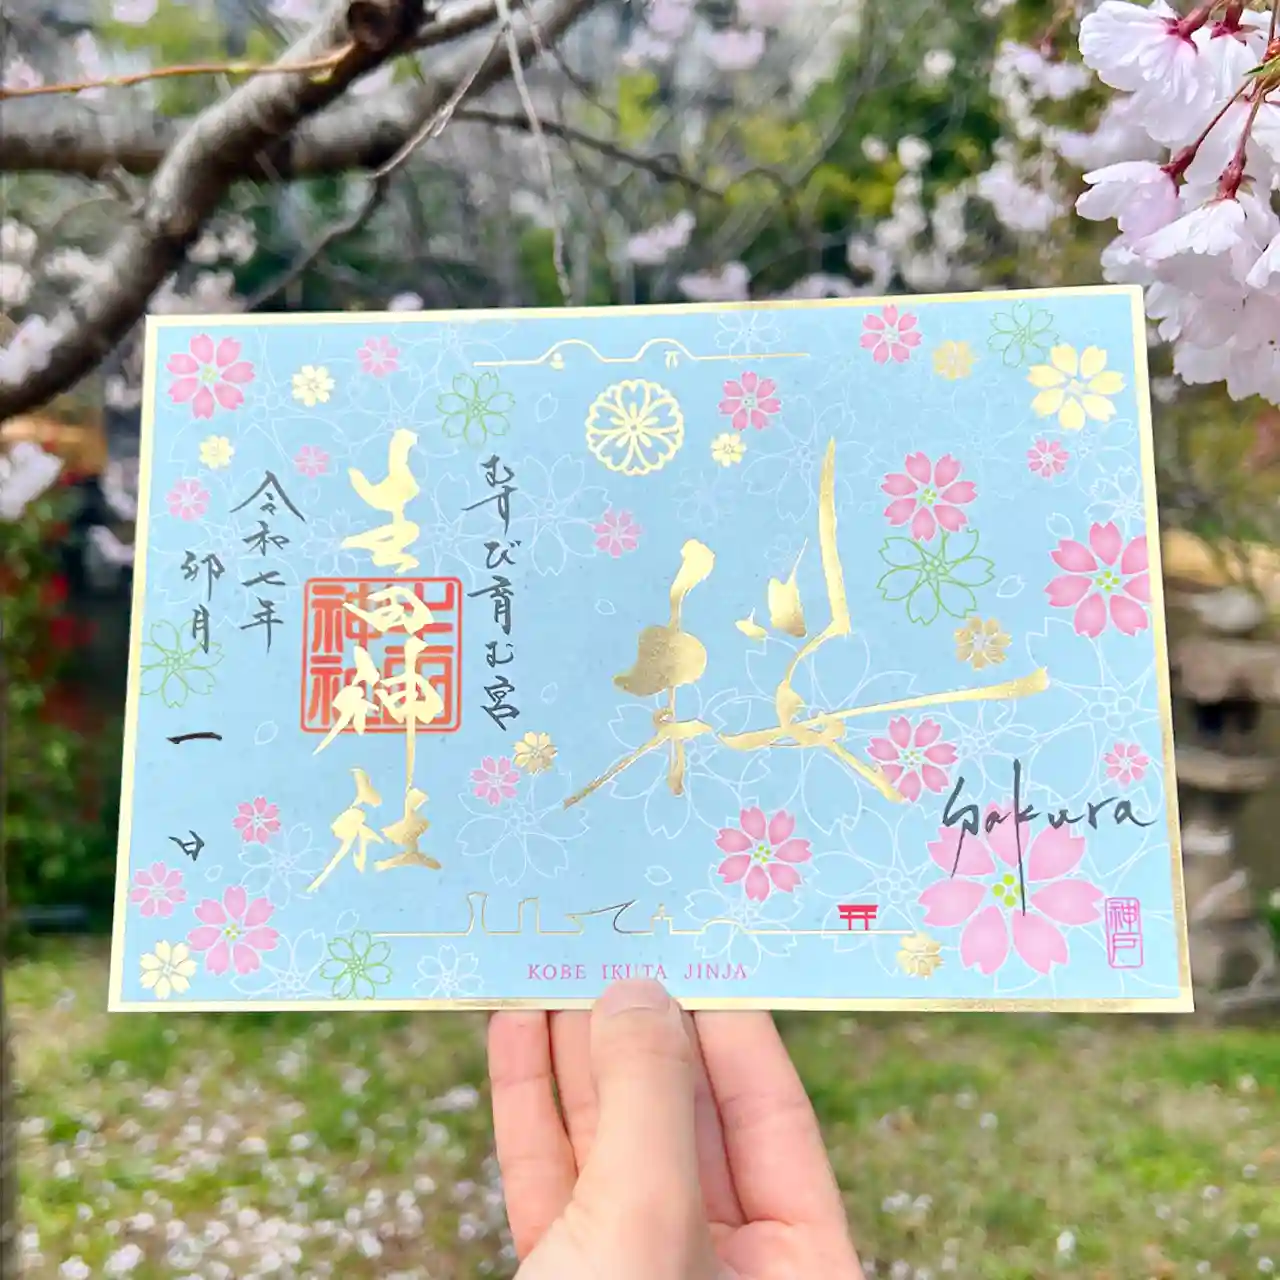 桜
Sakura
神戸
むすび育む宮
生田神社
生田神社
令和七年
卯月
一
日
KOBE IKUTA JINJA